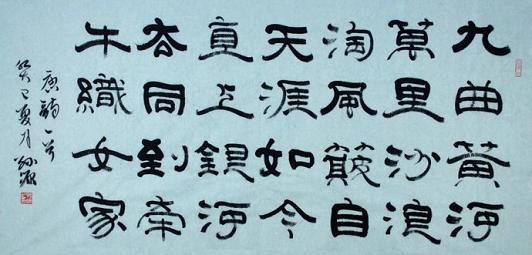 九曲黄河
萬里沙浪
淘風簸自
天涯如今
直上銀河
去同到牽
牛織女家
唐詩一首
癸巳夏月